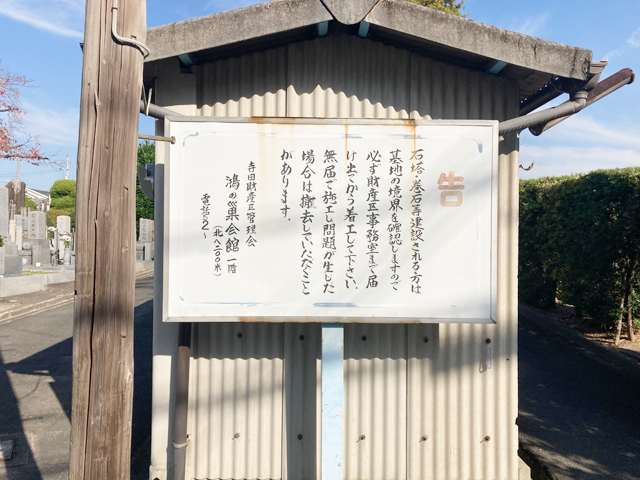 告
石塔・巻石等建設される方は
墓地の境界を確認しますので
必ず財産区事務室まで届
け出てから着工して下さい、
無届で施工し問題が生じた
場合は撤去していただくこと
があります。
寺田財産区管理会
鴻の巣会館 一階
(北へ二〇〇米)
電話52〜